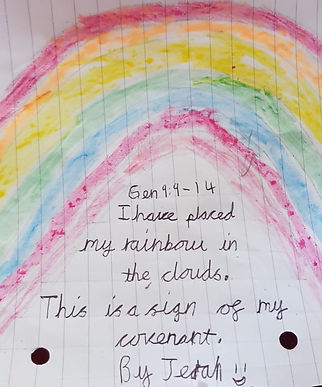 Gen 9:9-14
I have placed
my rainbow in
the clouds.
This is a sign of my
covenant.
By Jetah :)